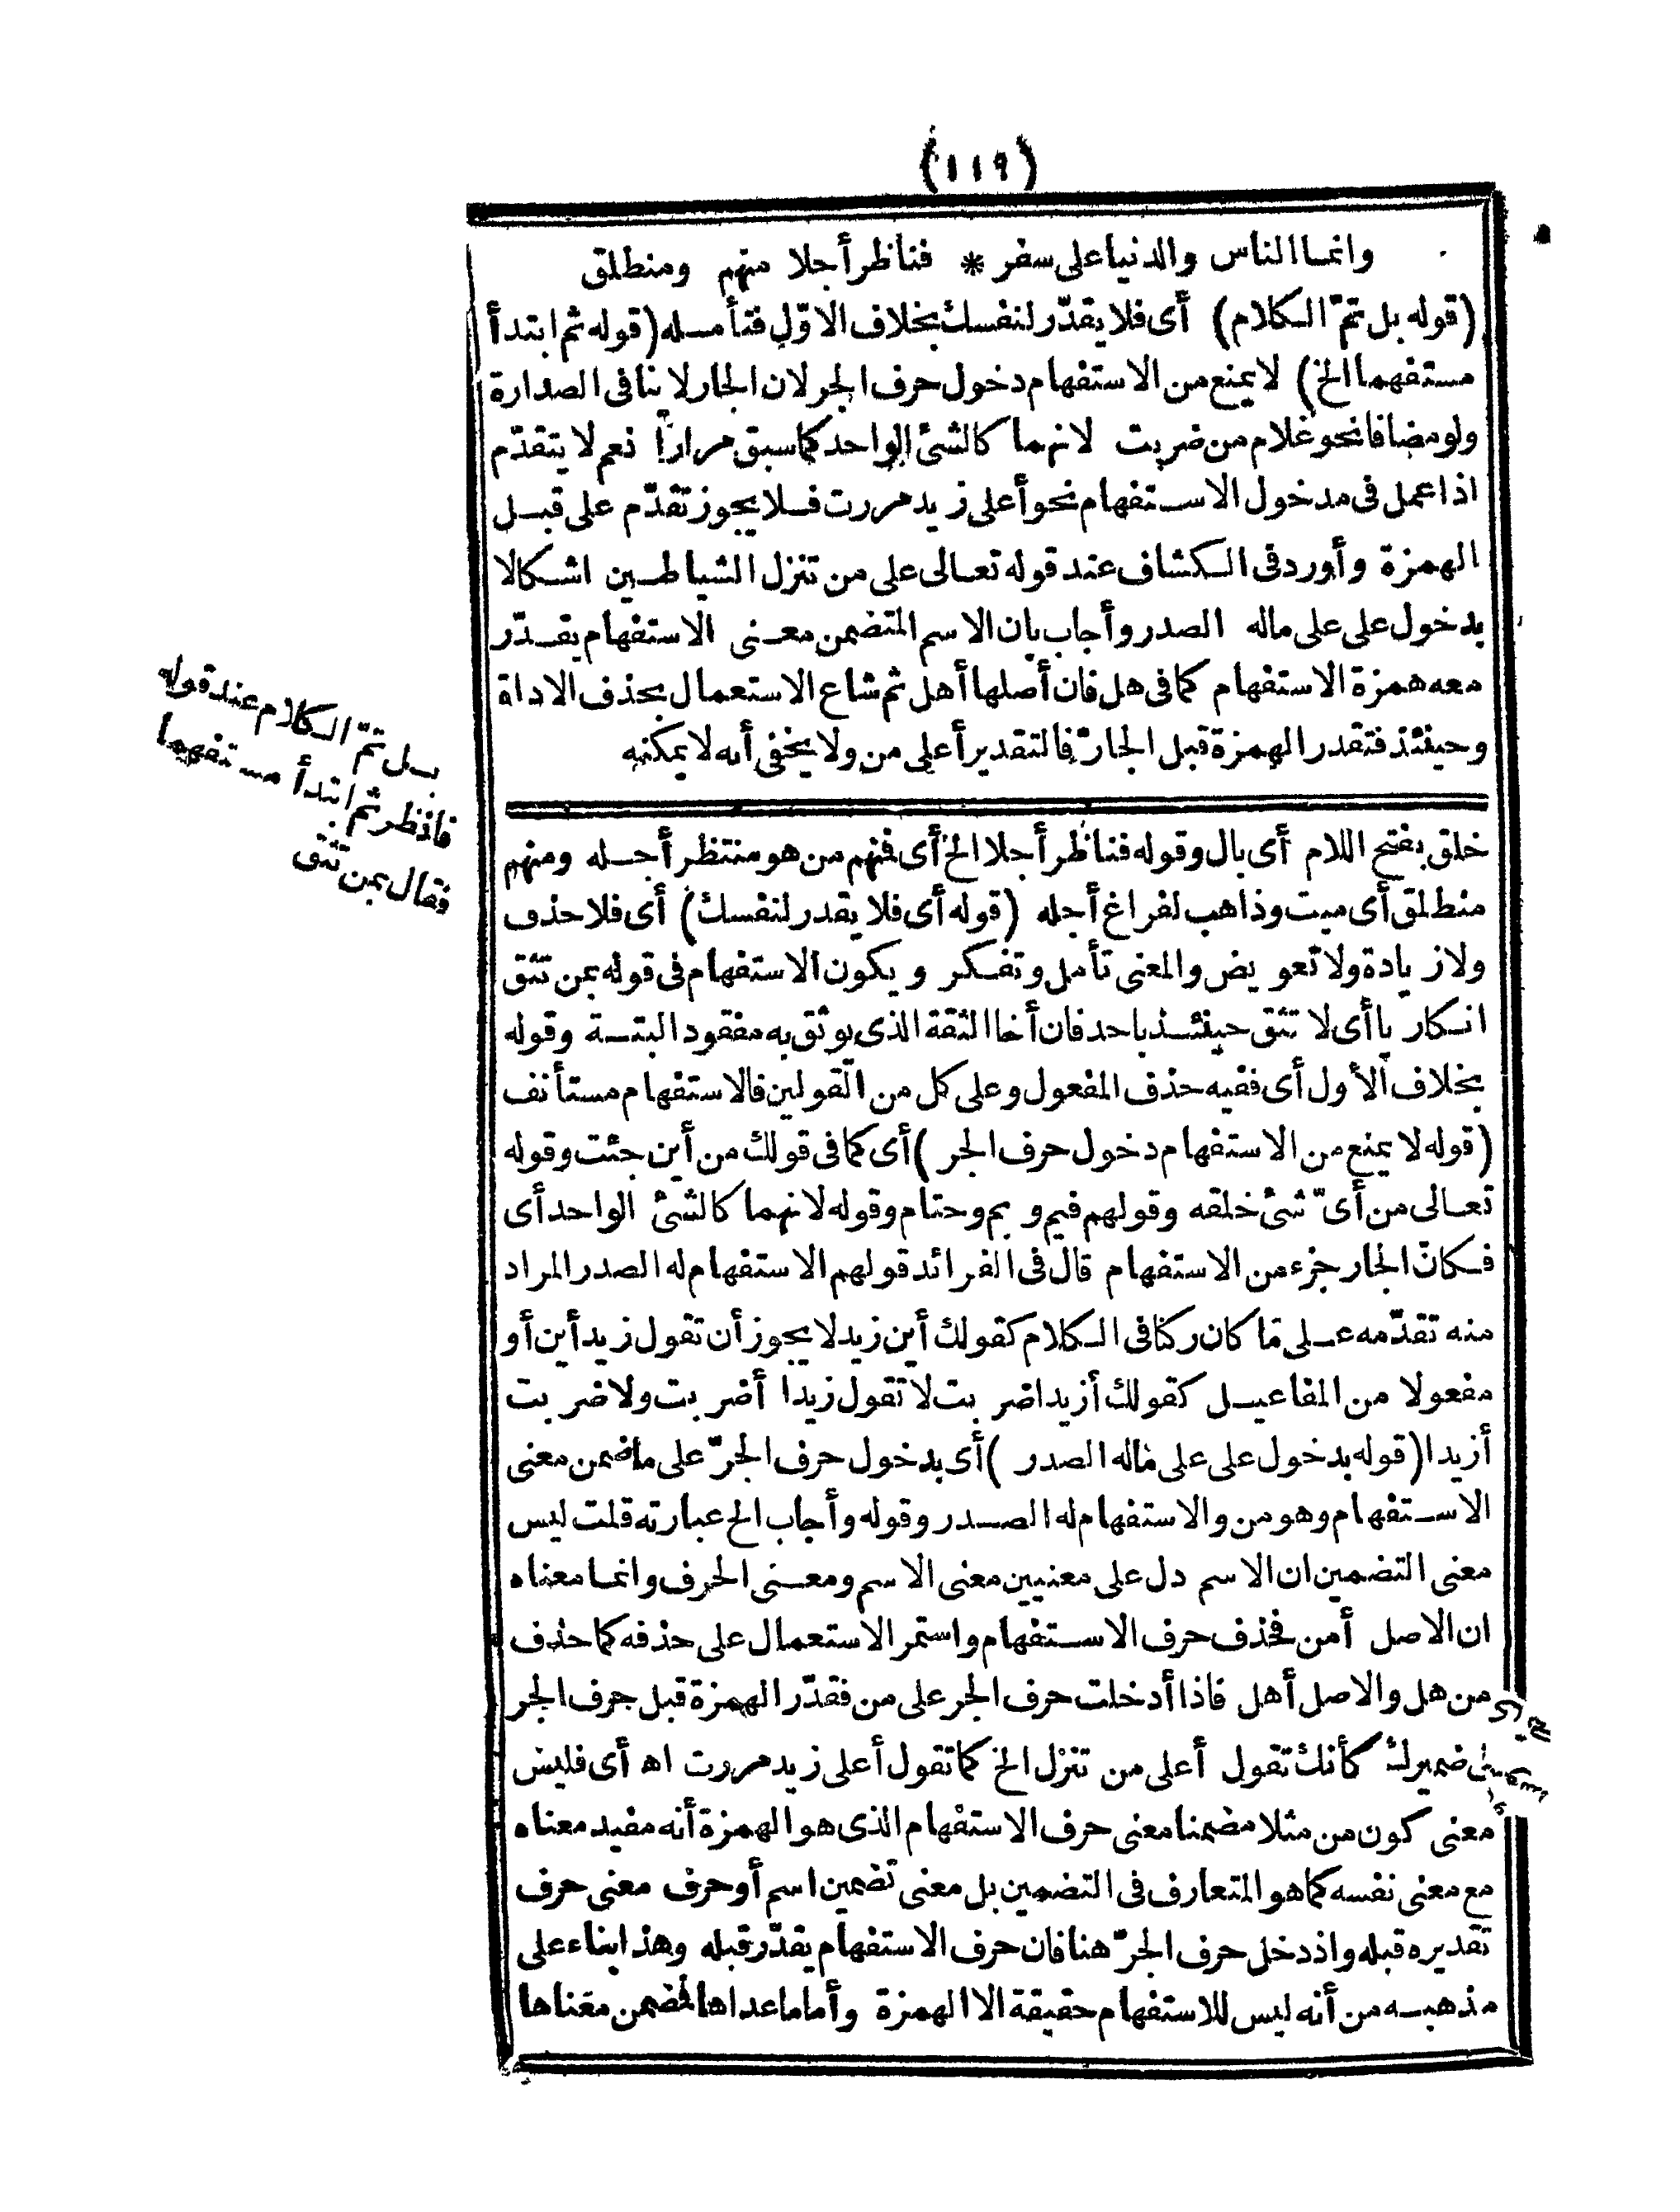 (١١٩)
وانما الناس والدنيا على سفر * فناظر أجلا منهم ومنطلق
(قوله بل تمّ الكلام) أى فلا يقدّر لنفسك بخلاف الاوّل فتأمله (قوله ثم ابتدأ
مستفهما الخ) لا يمنع من الاستفهام دخول حرف الجر لان الجار لا ينافى الصدارة
ولو مضافا نحو غلام من ضربت لانهما كالشئ الواحد كما سبق مرارا نعم لا يتقدّم
اذا عمل فى مدخول الاستفهام نحو أعلى زيد مررت فلا يجوز تقدّم على قبل
الهمزة وأورد فى الكشاف عند قوله تعالى على من تنزل الشياطين اشكالا
بدخول على على ماله الصدر وأجاب بان الاسم المتضمن معنى الاستفهام يقدّر
معه همزة الاستفهام كما فى هل فان أصلها أهل ثم شاع الاستعمال بحذف الاداة
وحينئذ فتقدر الهمزة قبل الجارّ فالتقدير أعلى من ولا يخفى أنه لا يمكنه
بل تمّ الكلام عند قوله
فانظر ثم ابتدأ مستفهما
فقال بمن تثق
خلق بفتح اللام أى بال وقوله فناظر أجلا الخ أى فمنهم من هو منتظر أجله ومنهم
منطلق أى ميت وذاهب لفراغ أجله (قوله أى فلا يقدر لنفسك) أى فلا حذف
ولا زيادة ولا تعويض والمعنى تأمل وتفكر ويكون الاستفهام فى قوله بمن تثق
انكاريا أى لا تثق حينئذ باحد فان أخا الثقة الذى يوثق به مفقود البتة وقوله
بخلاف الأول أى ففيه حذف المفعول وعلى كل من القولين فالاستفهام مستأنف
(قوله لا يمنع من الاستفهام دخول حرف الجر) أى كما فى قولك من أين جئت وقوله
تعالى من أىّ شئ خلقه وقولهم فيم وبم وحتام وقوله لانهما كالشئ الواحد أى
فكانّ الجار جزء من الاستفهام قال فى الفرائد قولهم الاستفهام له الصدر المراد
منه تقدّمه على ما كان ركنا فى الكلام كقولك أين زيد لا يجوز أن تقول زيد أين أو
مفعولا من المفاعيل كقولك أزيدا ضربت لا تقول زيدا أضربت ولا ضربت
أزيدا (قوله بدخول على على ماله الصدر) أى بدخول حرف الجرّ على ما ضمن معنى
الاستفهام وهو من والاستفهام له الصدر وقوله وأجاب الخ عبارته قلت ليس
معنى التضمين ان الاسم دل على معنيين معنى الاسم ومعنى الحرف وانما معناه
ان الاصل أمن فحذف حرف الاستفهام واستمر الاستعمال على حذفه كما حذف
من هل والاصل أهل فاذا أدخلت حرف الجر على من فقدّر الهمزة قبل حرف الجر
ضميرك كأنك تقول أعلى من تنزل الخ كما تقول أعلى زيد مررت اه أى فليس
معنى كون من مثلا مضمنا معنى حرف الاستفهام الذى هو الهمزة أنه مفيد معناه
مع معنى نفسه كما هو المتعارف فى التضمين بل معنى تضمين اسم أو حرف معنى حرف
تقديره قبله واذ دخل حرف الجرّ هنا فان حرف الاستفهام يقدّر قبله وهذا بناء على
مذهبه من أنه ليس للاستفهام حقيقة الا الهمزة وأما ما عداها فمضمن معناها